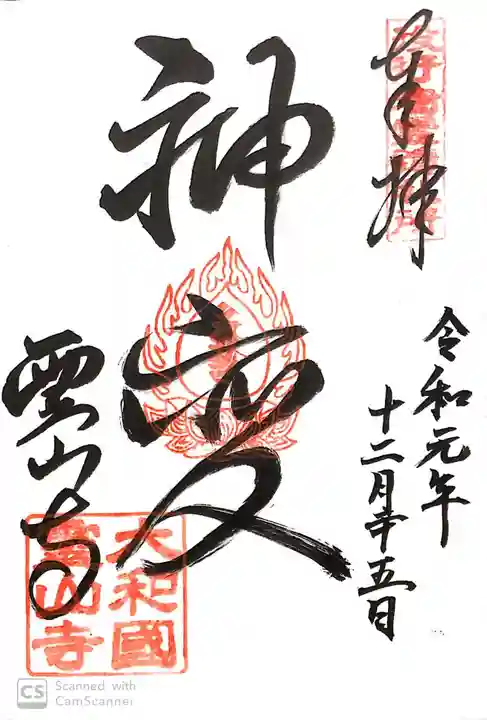 奉拝
令和元年
十二月廿五日
神
変
霊山寺
大和國
霊山寺
CS Scanned with
CamScanner